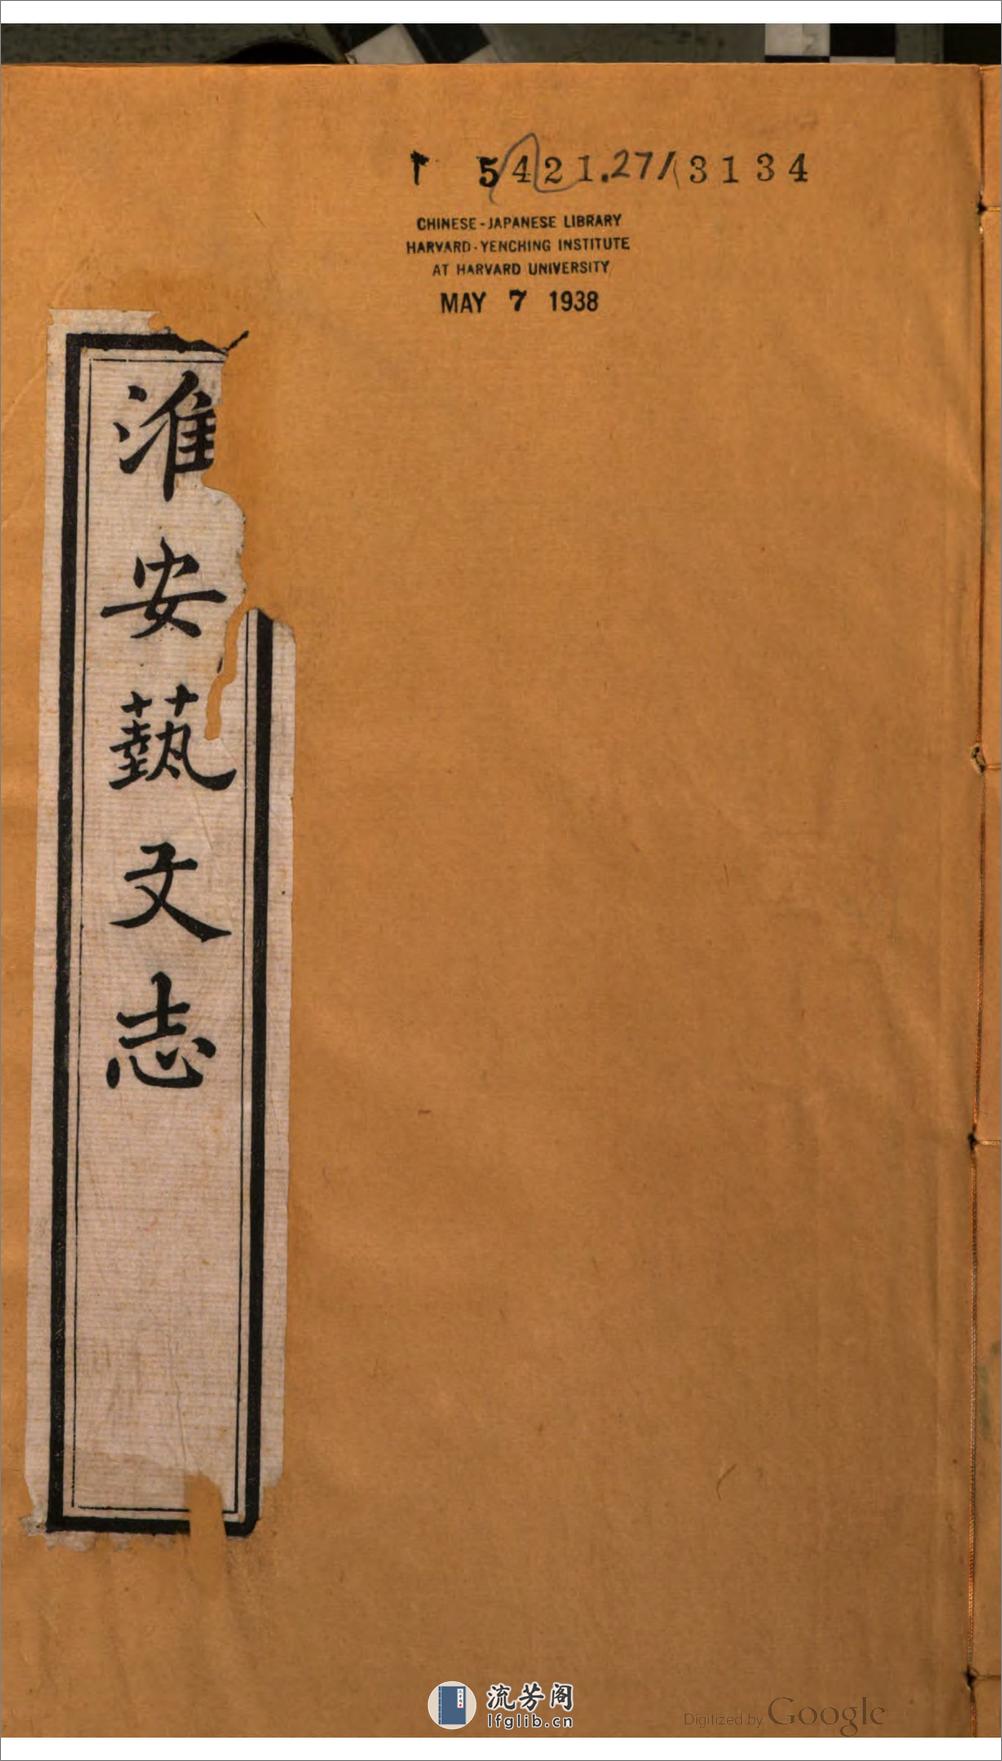 T 5421.27/3134
CHINESE-JAPANESE LIBRARY
HARVARD-YENCHING INSTITUTE
AT HARVARD UNIVERSITY
MAY 7 1938
淮安藝文志
流芳阁
lfglib.cn
Digitized by Google